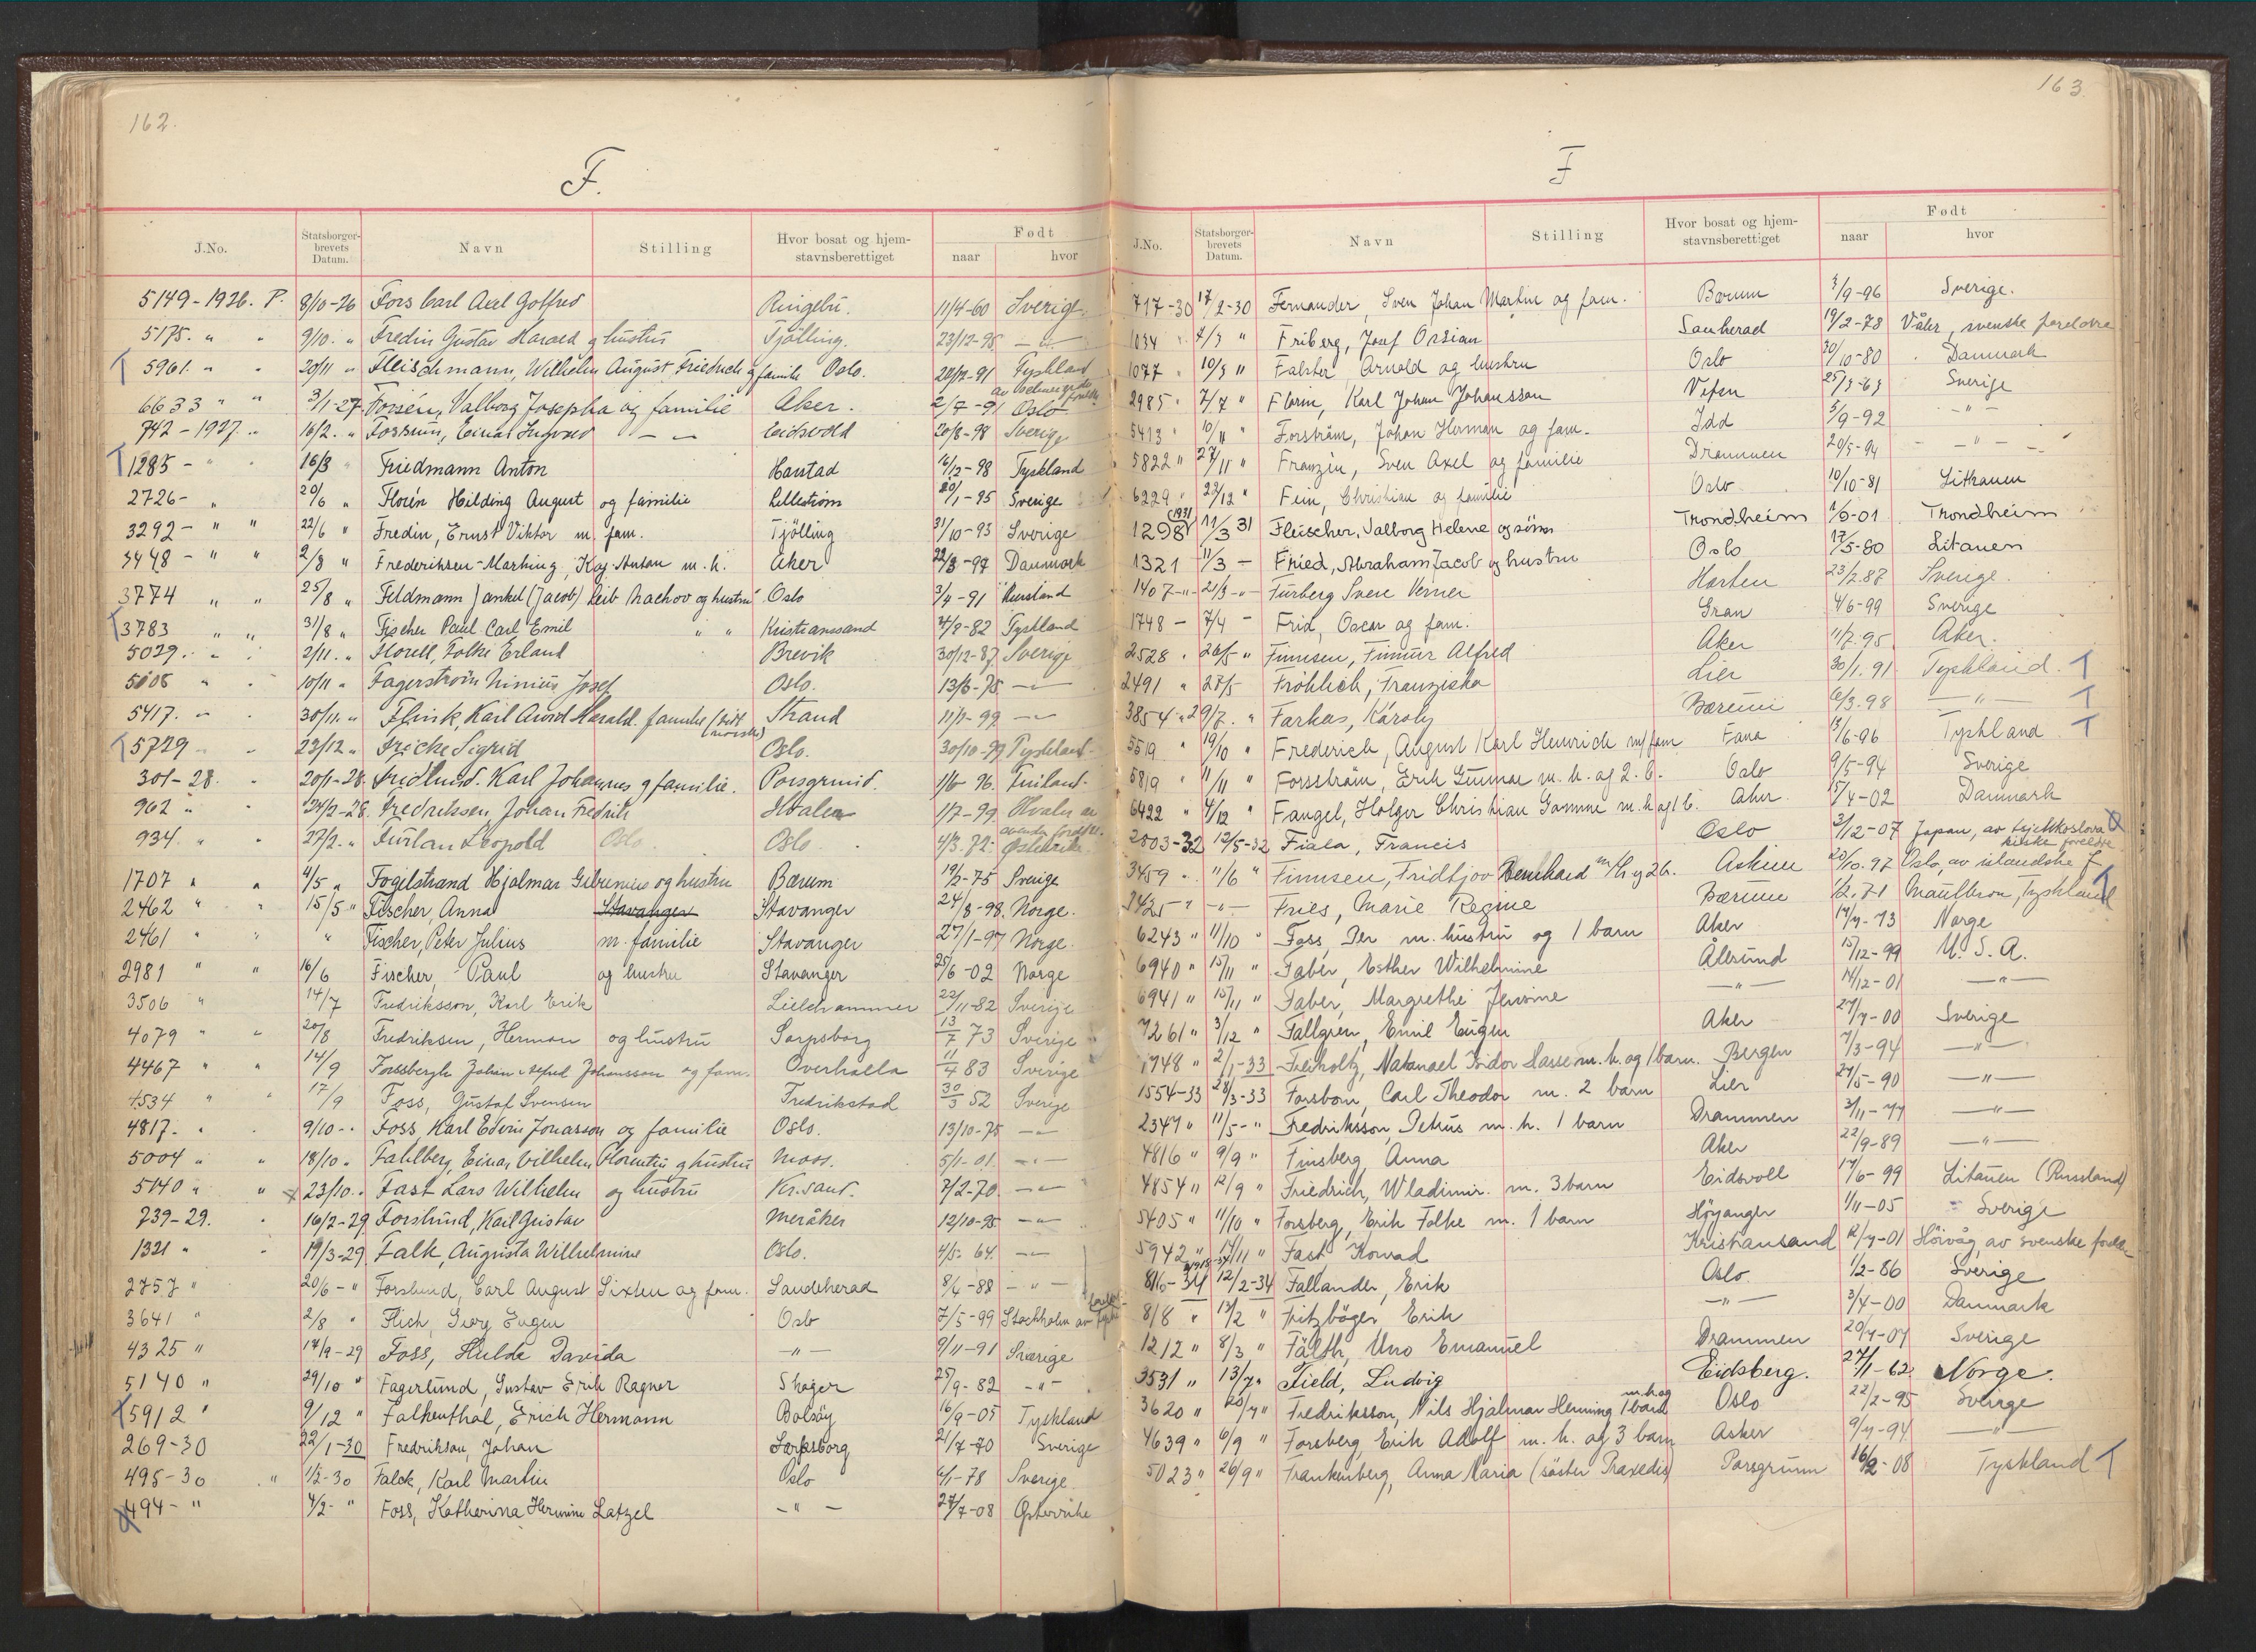 162.
F.
J.No. Statsborgerbrevets Datum. Navn Stilling Hvor bosat og hjemstavnsberettiget Født naar hvor
5149-1926. P. 8/10-26 Fors Carl Axel Gotfred Ringebu. 11/4-60 Sverige
5175. " " 9/10. " Fredin Gustav Harald og hustru Tjölling. 23/12-95 — " —
T 5961. " " 20/11 " Fleischmann, Wilhelm August Friedrich og familie Oslo. 20/12-91 Tyskland
6633 " " 3/1-27. Forsén, Valborg Josepha og familie Aker. 2/7-91 Oslo
742-1927 " 16/2. " Fossum, Einar Ingvald — " — Eidsvold 20/8-98 Sverige
T 1285 - " " 16/3 " Friedmann Anton Harstad 16/12-98 Tyskland
2726 - " 20/6 " Florén Hilding August og familie Lilleström 20/1-95 Sverige
3292 - " " 22/6 " Fredin, Ernst Viktor m. fam. Tjölling 31/10-93 Sverige
3448 - " " 2/8 " Frederiksen-Marhing, Kaj Anton m. h. Aker 22/3-97 Danmark
3774 " " 25/8 " Feldmann Jankel (Jacob) Leib Nachov og hustru Oslo 3/4-91 Russland
T 3783 " " 31/8 " Fischer Paul Carl Emil " " Kristianssand 4/8-82 Tyskland
5029. " " 2/11. " Florell, Folke Erland Brevik 30/12-87 Sverige
5108 " " 10/11 " Fagerström Ninius Josef Oslo. 13/6-75 — " —
5417. " " 30/11. " Flink, Karl Arvid Harald. familie Strand 11/7-99 — " —
T 5729 " " 23/12 " Fricke Sigrid Oslo. 30/10-99 Tyskland
301-28. " 20/1-28 Fridlund. Karl Johannes og familie. Porsgrund. 1/6 96. Finland.
962 " " 24/2-28. Fredriksen, Johan Fredrik Hvaler 1/7-99 Hvaler av svenske foreldre.
934. " " 27/2. " Furlan Leopold Oslo. Oslo. 4/3. 72. Østerrike.
1707 " " 4/5 " Fogelstrand Hjalmar Gibrenius og hustru Bærum 19/2-75 Sverige
2462 " " 15/5 " Fischer, Anna Stavanger Stavanger 24/8-98. Norge.
2461 " " " Fischer, Peter Julius m. familie Stavanger 27/1-97 Norge.
2981 " " 16/6 Fischer, Paul og hustru Stavanger 25/6-02 Norge
3506 " 14/7 Fredriksson, Karl Erik Lillehammer 22/11-82 Sverige
4079 " " 20/8 Fredriksen, Herman og hustru Sarpsborg 13/7 73 Sverige
4467 " " 14/9 Forssbergh Johan Alfred Johansson og fam. Overhalla 11/4 83 Sverige
4534 " " 17/9 Foss, Gustaf Svensen Fredrikstad 30/3 52 Sverige
4817. " " 9/10 - . Foss, Karl Edvin Jonasson og familie Oslo. 13/10-75 — " —
5004 " " 18/10 " Fahlberg, Einar Vilhelm Florentin og hustru Moss. 5/1-01. — " —
5140 " " x 23/10. " Fast Lars Wilhelm og hustru Kr.sand. 7/2-70. — " —
739-29. " 16/2-29 Forslund, Karl Gustav Meråker 12/10-95 — " —
1321 " " 19/3-29 Falk, Augusta Wilhelmine Oslo. 4/5-64. — " —
2757 " 20/6 - " Forslund, Carl August Sixten og fam. Saudeherad 8/4-88 — " —
3641 " 2/8 " Flich, Georg Eugen Oslo 7/5-99 Stockholm av tyske foreld.
4325 " 14/9-29 Foss, Hulda Davida — " — 9/11-91 Sverige
5140 " 29/10 " Fagerlund, Gustav Erik Ragnar Skoger 25/9-82 — " —
T 5912 " 9/12 " Falkenthal, Erich Hermann Bolsöy 16/9-05 Tyskland
269-30 22/1-30 Fredrikson, Johan Sarpsborg 21/7-70 Sverige
495-30 " 1/2-30 Falck, Karl Martin Oslo 6/1-78 Sverige
494 - " 4/2 - " Foss, Katharina Hermine Latzel — " — 27/7-08 Østerrike
163.
F
J.No. Statsborgerbrevets Datum. Navn Stilling Hvor bosat og hjemstavnsberettiget Født naar hvor
717-30 17/2-30 Fernander, Sven Johan Martin og fam. Bærum 3/9-96 Sverige.
1034 " 4/3 " Friberg, Josef Ossian Sauherad 19/2-78 Våler, svenske foreldre
1077 " 10/3 " Falster Arnold og hustru Oslo 30/10-80 Danmark
2985 " 7/7 " Florin, Karl Johan Johansson Vefsn 25/3-63 Sverige
5413 " 10/11 " Forsström, Johan Herman og fam. Idd 5/9-92 — " —
5822 " 27/11 " Franzén, Sven Axel og familie Drammen 20/5-94 — " —
6229 " 22/12 " Fein, Christian og familie Oslo 10/10-81 Litauen
1298 (1931) 11/3 31 Fleischer, Valborg Helene og sönn Trondheim 1/6-01 Trondheim
1321 11/3 — Fried, Abraham Jacob og hustru Oslo 17/5-80 Litauen
1407 - " - 21/3 - " - Furberg Svere Verner Horten 23/2.87 Sverige.
1748 — 7/4 — Frid, Oscar og fam. Gran 4/6-99 Sverige
2528 " 26/5 " Finnsen, Finnur Alfred Aker 11/7.95 Aker.
2491 " 28/5 Fröhlich, Franziska Lier 30/1.91 Tyskland. T
3854 " 29/7. " Farkas, Károly Bærum 6/3.98 — " — T
5519 " 19/10 " Frederich, August Karl Heinrich m/fam Fana 13/6-96 Tyskland T
5819 " 11/11 " Forsström, Erik Gunnar m. h. og 2. b. Oslo 9/5-94 Sverige
6422 " 4/12 " Fangel, Holger Christian Gamme m.h og 1 b. Aker. 15/4-02 Danmark
2003-32 12/5-32 Fiala, Francis Oslo 3/12-07 Japan, av tsjekkoslovakiske foreldre
3459 " 11/6 " Finnsen, Fridtjov Bernhard m/h og 2 b. Askim 20/10.97 Oslo, av islandske f
3425 " — " — Fries, Marie Regine Bærum 1/2.71 Maulbron, Tyskland T
6243 " 11/10 " Foss, Per m. hustru og 1 barn Aker 14/7-73 Norge
6940 " 15/11 " Faber, Esther Wilhelmine Ålesund 15/12-99 U. S. A.
6941 " 15/11 " Faber, Margrethe Jensine — " — 14/12-01 — " —
7261 " 3/12 " Fallgren, Emil Eugen Aker 27/7-00 Sverige
1748 " 2/1-33 Freiholtz, Natanael Isidor Hasse m. h. og 1 barn. Bergen 7/3-94 — " —
1554-33 28/3-33 Forsbom, Carl Theodor m. 2 barn Lier 24/5-90 — " —
2347 " 11/5 - " Fredriksson, Petrus m. h. 1 barn Drammen 3/11-77 — " —
4816 " 9/9 " Finsberg, Anna Aker 22/9-89 — " —
4854 " 12/9 " Friedrich, Wladimir. m. 3 barn Eidsvoll 14/6-99 Litauen (Russland)
5405 " 11/10 " Forsberg, Erik Folke m. 1 barn Höyanger 1/11-05 Sverige
5942 " 14/11 " Fast, Konrad Kristiansand 12/7-01 Hövåg, av svenske foreldre
816-34 12/2-34 Fallander, Erik Oslo 1/2-86 Sverige
818 " 13/2 " Fritzböger, Erik — " — 3/4-00 Danmark
1212 " 8/3 " Fälth, Uno Emanuel Drammen 20/7-07 Sverige
3531 " 13/7 " Field, Ludvig Eidsberg. 27/1-62. Norge.
3620 " 20/7 " Fredriksson, Nils Hjalmar Henning m.h.og 1 barn Oslo 22/2-95 Sverige
4639 " 6/9 " Forsberg, Erik Adolf m. h. og 3 barn Asker 9/7-94 — " —
5023 " 26/9 " Frankenberg, Anna Maria (söster Praxedis) Porsgrunn 16/2-08 Tyskland T